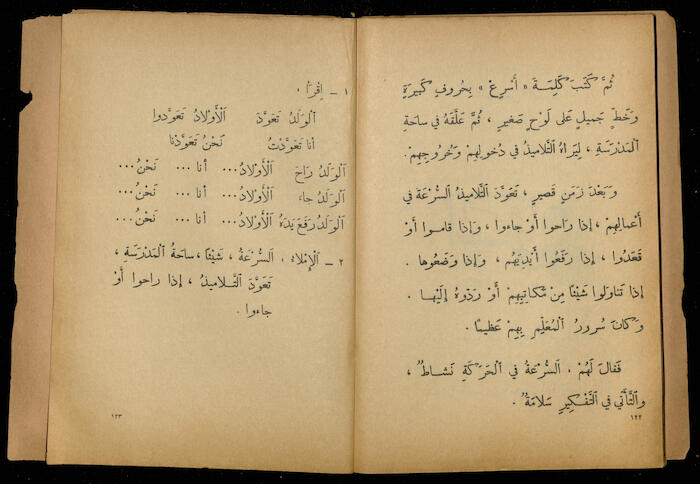 ثُمَّ كَتَبَ كَلِمَةَ « أَسْرِعْ » بِحُروفٍ كَبيرَةٍ
وَخَطٍّ جَميلٍ عَلى لَوْحٍ صَغيرٍ ، ثُمَّ عَلَّقَهُ في ساحَةِ
المَدْرَسَةِ ، لِيَراهُ التَّلاميذُ في دُخولِهِمْ وَخُروجِهِمْ .
وَبَعْدَ زَمَنٍ قَصيرٍ ، تَعَوَّدَ التَّلاميذُ السُّرْعَةَ في
أَعْمالِهِمْ ، إذا راحوا أَوْ جاءوا ، وَإذا قاموا أَوْ
قَعَدُوا ، إذا رَفَعُوا أَيْدِيَهُم ، وَإذا وَضَعُوها .
إذا تَناوَلُوا شَيْئًا مِنْ مَكاتِبِهِمْ أَوْ رَدّوهُ إلَيْها .
وَكانَ سُرورُ المُعَلِّمِ بِهِمْ عَظيمًا .
فَقالَ لَهُمْ : السُّرْعَةُ في الحَرَكَةِ نَشاطٌ ،
والتَّأَنّي في التَّفْكيرِ سَلامَةٌ .
١٢٢
١ - اِقْرَأْ :
اَلْوَلَدُ تَعَوَّدَ اَلْأَوْلادُ تَعَوَّدوا
أنا تَعَوَّدْتُ نَحْنُ تَعَوَّدْنا
اَلْوَلَدُ راحَ اَلْأَوْلادُ ... أنا ... نَحْنُ ...
اَلْوَلَدُ جاءَ اَلْأَوْلادُ ... أنا ... نَحْنُ ...
اَلْوَلَدُ رَفَعَ يَدَهُ اَلْأَوْلادُ ... أنا ... نَحْنُ ...
٢ - اَلْإِمْلاءُ : السُّرْعَةُ ، شَيْئًا ، ساحَةُ المَدْرَسَةِ ،
تَعَوَّدَ التَّلاميذُ ، إذا راحوا أَوْ
جاءوا .
١٢٣